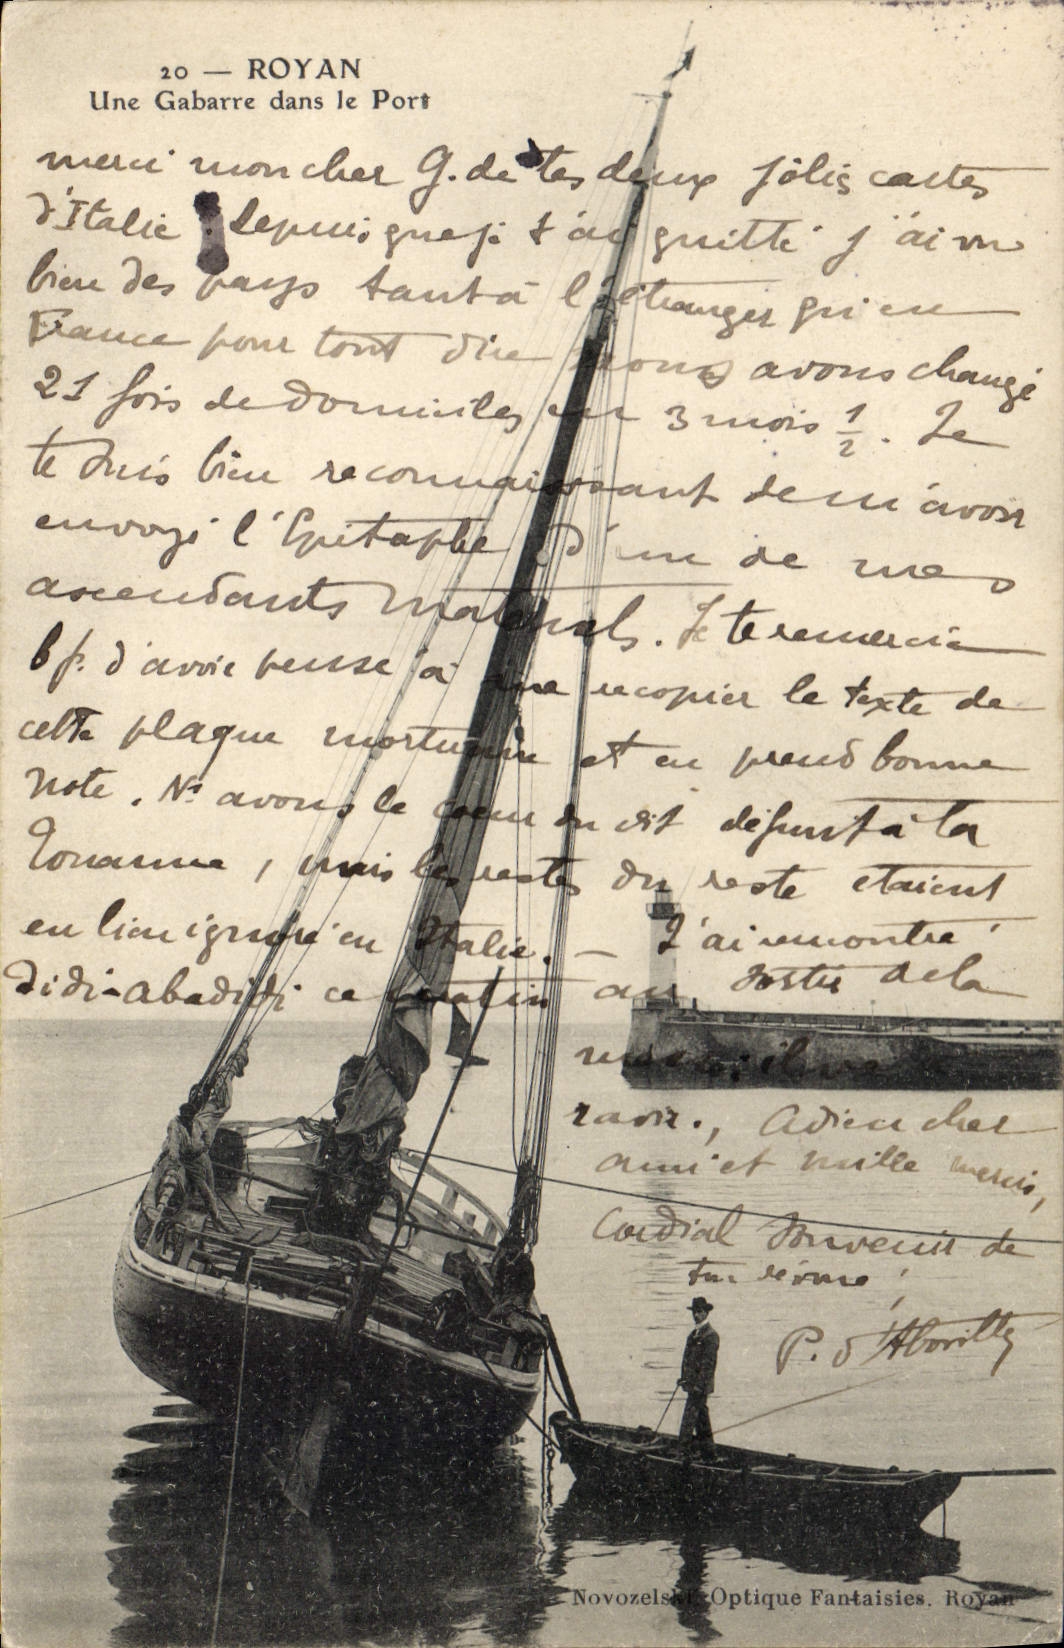 20 — ROYAN
Une Gabarre dans le Port
merci mon cher G. de tes deux jolis cartes
d'Italie. Depuis que je t'ai quitté j'ai vu
bien des pays tant à l'étranger qu'en
France pour tout dire nous avons changé
21 fois de domiciles en 3 mois 1/2. Je
te suis bien reconnaissant de m'avoir
envoyé l'Epitaphe d'un de mes
ascendants maternels. Je te remercie
bp. d'avoir pensé à me recopier le texte de
cette plaque mortuaire et en prend bonne
note. Ns avons le coeur du dit défunt à la
, mais les restes du reste etaient
en lieu ignoré en Italie. — J'ai remontré
Didi-Abadidi ce matin au sortir de la
il va
ravir., Adieu cher
ami et mille mercis,
Cordial souvenir de
ton
P. d'Aboville
Novozelski Optique Fantaisies. Royan